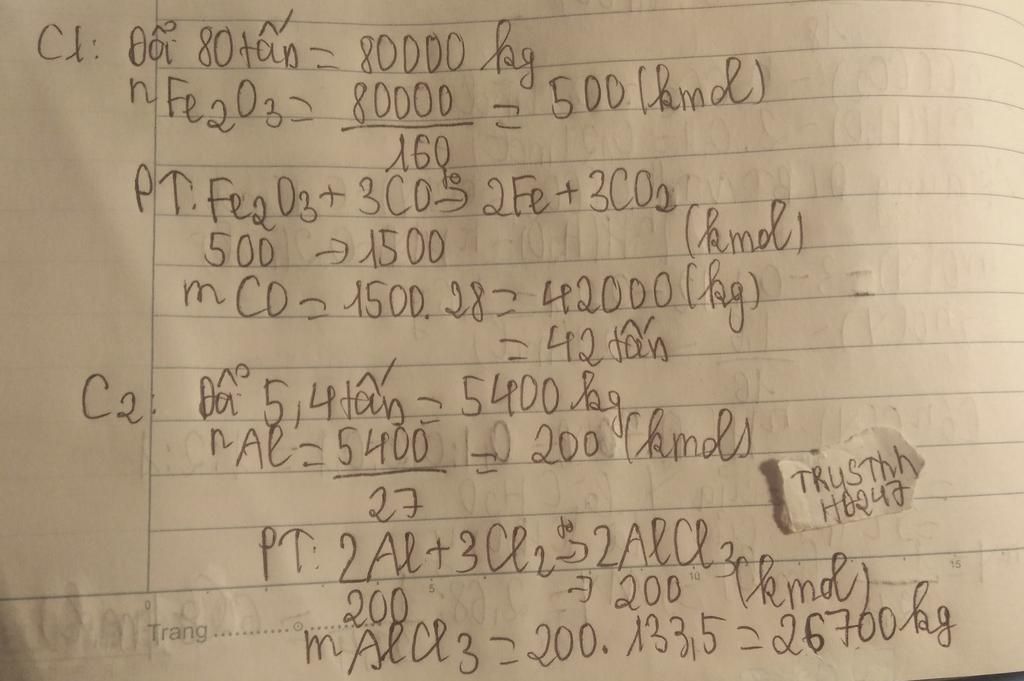 C1: Đổi 80 tấn = 80000 kg
nFe2O3 = 80000/160 = 500 (kmol)
PT: Fe2O3 + 3CO t°→ 2Fe + 3CO2
500 → 1500 (kmol)
mCO = 1500.28 = 42000 (kg) =
= 42 tấn
C2: Đổi 5,4 tấn = 5400 kg
nAl = 5400/27 = 200 (kmol)
TRYSThh
HĐ247
PT: 2Al + 3Cl2 t°→ 2AlCl3
200 → 200 (kmol)
Trang
mAlCl3 = 200.133,5 = 26700 kg